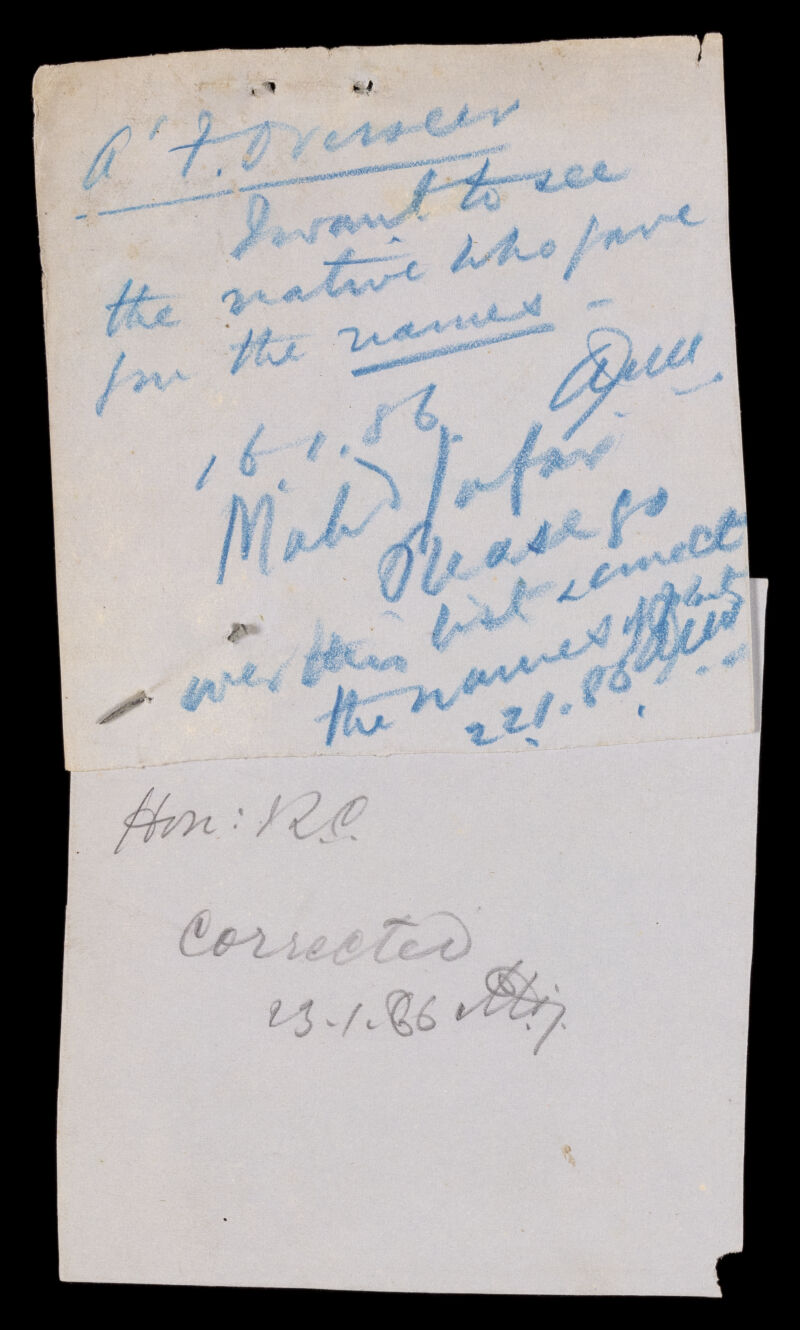 A' F. Overseer
I want to see
the native who gave
you the names -
16.1.86.
Mahd Jafar
Please go
over this list & correct
the names
22.1.86
Hon: R.C.
Corrected
23.1.86